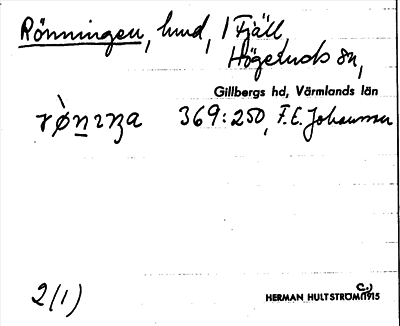 Rönningen, hmd, 1 Fjäll,
Högeruds sn,
Gillbergs hd, Värmlands län
369:250, F.E. Johansson
2(1)
HERMAN HULTSTRÖM 1915